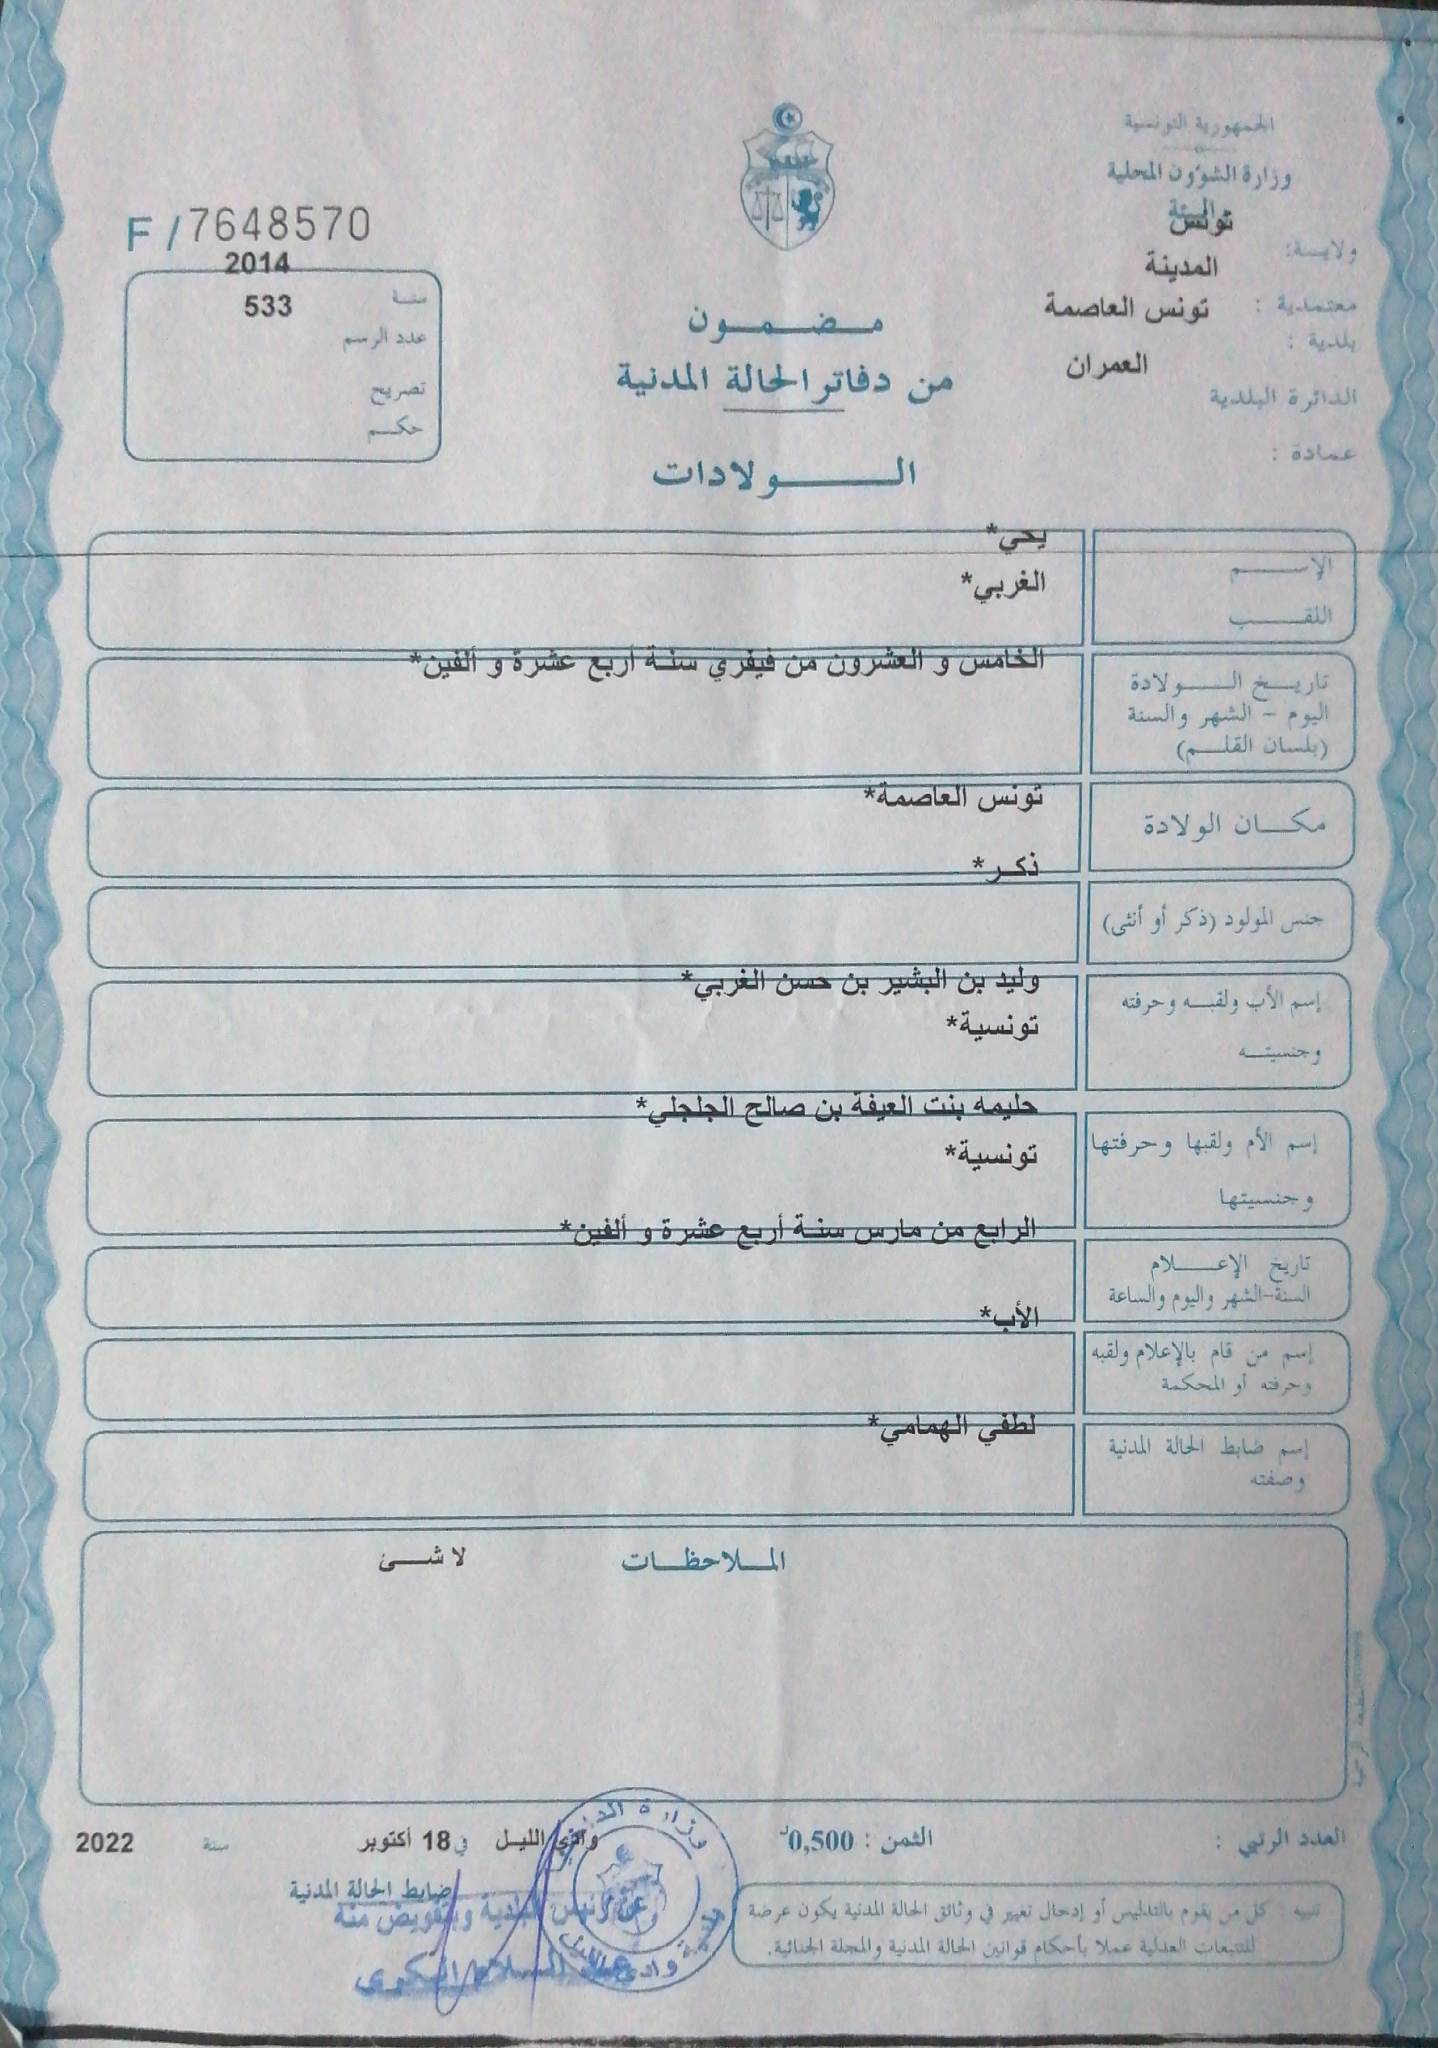 الجمهورية التونسية
وزارة الشؤون المحلية
والبيئة
ولايـة: تونس
معتمدية : المدينة
بلدية : تونس العاصمة
الدائرة البلدية العمران
عمادة :
F / 7648570
سنة 2014
عدد الرسم 533
تصريح
حكم
مضمون
من دفاتر الحالة المدنية
الولادات
الإسم يحي*
اللقب الغربي*
تاريخ الولادة
اليوم - الشهر والسنة
(بلسان القلم)
الخامس و العشرون من فيفري سنة أربع عشرة و ألفين*
مكان الولادة تونس العاصمة*
جنس المولود (ذكر أو أنثى) ذكر*
إسم الأب ولقبه وحرفته
وجنسيته
وليد بن البشير بن حسن الغربي*
تونسية*
إسم الأم ولقبها وحرفتها
وجنسيتها
حليمه بنت العيفة بن صالح الجلجلي*
تونسية*
تاريخ الإعلام
السنة-الشهر واليوم والساعة
الرابع من مارس سنة أربع عشرة و ألفين*
إسم من قام بالإعلام ولقبه
وحرفته أو المحكمة
الأب*
إسم ضابط الحالة المدنية
وصفته
لطفي الهمامي*
الملاحظات لا شئ
العدد الرتبي :
الثمن : 0,500د
وادي الليل في 18 أكتوبر سنة 2022
ضابط الحالة المدنية
عن رئيس البلدية وبتفويض منه
تنبيه : كل من يقوم بالتدليس أو إدخال تغيير في وثائق الحالة المدنية يكون عرضة
للتتبعات العدلية عملا بأحكام قوانين الحالة المدنية والمجلة الجنائية.